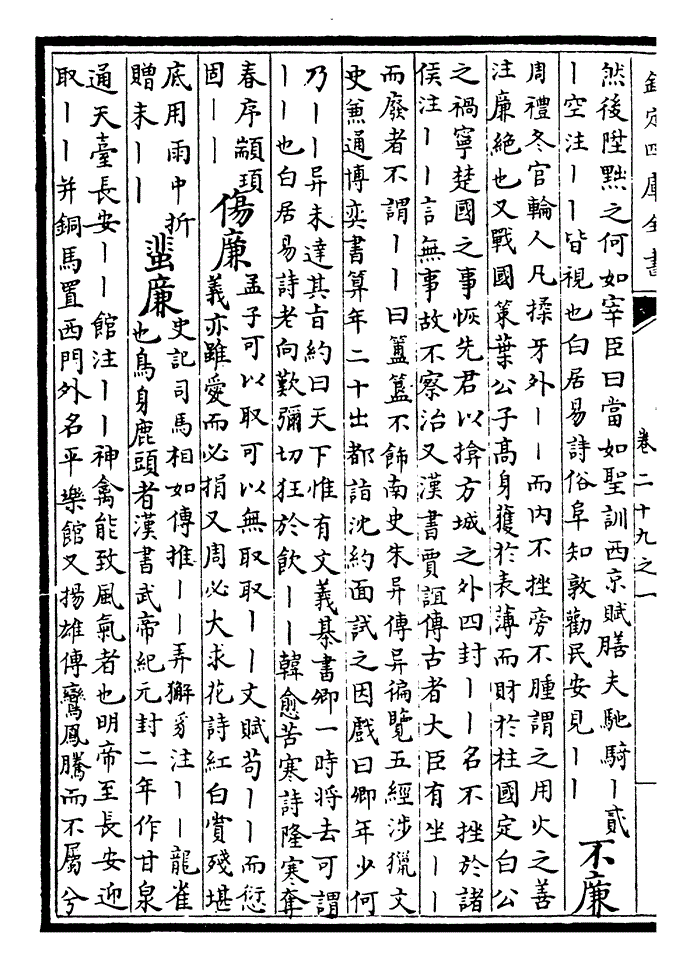 欽定四庫全書
卷二十九之一
然後陞黜之何如宰臣曰當如聖訓西京賦膳夫馳騎丨貳
丨空注丨丨皆視也白居易詩俗阜知敦勸民安見丨丨
不廉
周禮冬官輪人凡揉牙外丨丨而内不挫旁不腫謂之用火之善
注廉絶也又戰國策葉公子髙身獲於表薄而財於柱國定白公
之禍寧楚國之事恢先君以揜方城之外四封丨丨名不挫於諸
侯注丨丨言無事故不察治又漢書賈誼傳古者大臣有坐丨丨
而廢者不謂丨丨曰簠簋不飾南史朱异傳异徧覽五經涉獵文
史兼通博奕書算年二十出都詣沈約面試之因戲曰卿年少何
乃丨丨异未達其旨約曰天下惟有文義棊書卿一時将去可謂
丨丨也白居易詩老向歎彌切狂於飲丨丨韓愈苦寒詩隆寒奪
春序顓頊
固丨丨
傷廉
孟子可以取可以無取取丨丨文賦苟丨丨而愆
義亦雖愛而必捐又周必大求花詩紅白賞殘堪
底用雨中折
贈未丨丨
蜚廉
史記司馬相如傳推丨丨弄獬豸注丨丨龍雀
也鳥身鹿頭者漢書武帝紀元封二年作甘泉
通天臺長安丨丨館注丨丨神禽能致風氣者也明帝至長安迎
取丨丨并銅馬置西門外名平樂館又揚雄傳鸞鳳騰而不屬兮